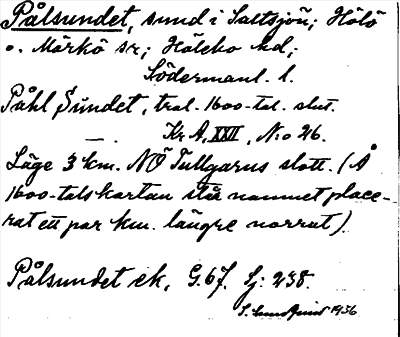 Pålsundet, sund i Saltsjön; Hölö
o. Mörkö sr; Hölebo hd;
Södermanl. l.
Påhl Sundet, trol. 1600-tal. slut.
— Kr A, XXII, N:o 26.
Läge 3 km. NÖ Tullgarns slott. (Å
1600-talskartan står namnet place-
rat ett par km. längre norrut).
Pålsundet ek, G. 67. Sj: 238.
S. Lundqvist 1936